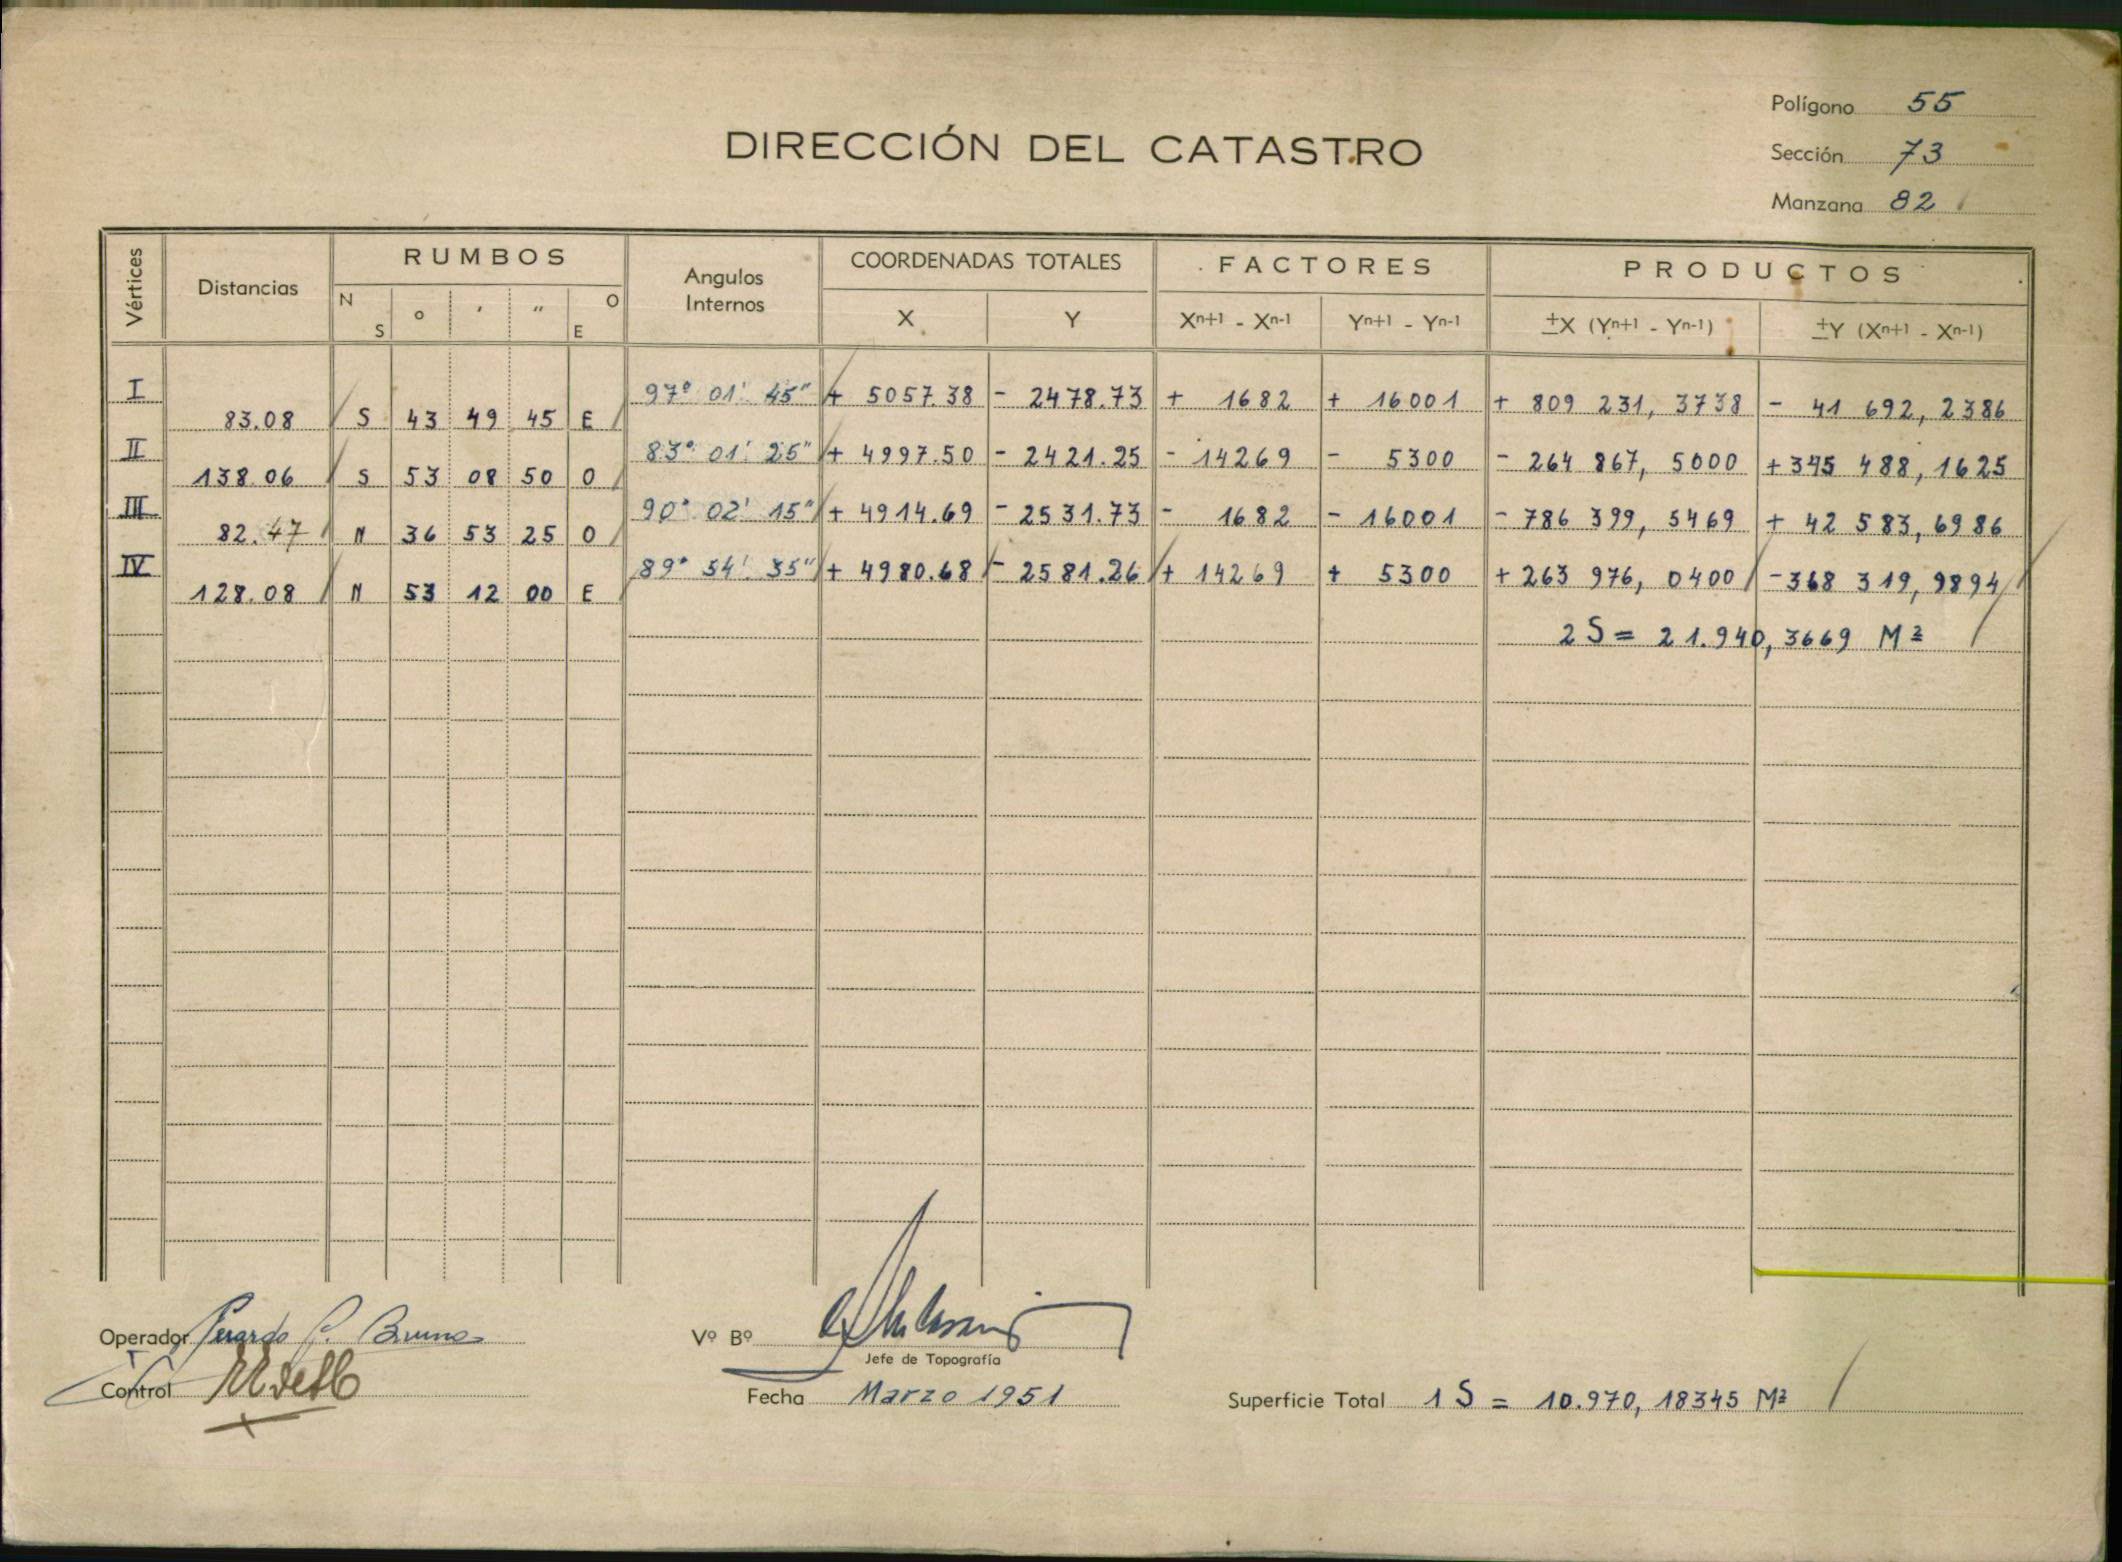 Polígono 55
DIRECCIÓN DEL CATASTRO
Sección 73
Manzana 82
Vértices Distancias RUMBOS Angulos Internos COORDENADAS TOTALES FACTORES PRODUCTOS
N S o ' " O E X Y Xn+1 - Xn-1 Yn+1 - Yn-1 ±X (Yn+1 - Yn-1) ±Y (Xn+1 - Xn-1)
I 97° 01' 45" + 5057.38 - 2478.73 + 1682 + 16001 + 809 231, 3738 - 41 692, 2386
83.08 S 43 49 45 E
II 83° 01' 25" + 4997.50 - 2421.25 - 14269 - 5300 - 264 867, 5000 + 345 488, 1625
138.06 S 53 08 50 O
III 90° 02' 15" + 4914.69 - 2531.73 - 1682 - 16001 - 786 399, 5469 + 42 583, 6986
82.47 N 36 53 25 O
IV 89° 54' 35" + 4980.68 - 2581.26 + 14269 + 5300 + 263 976, 0400 - 368 319, 9894
128.08 N 53 12 00 E
2 S = 21.940, 3669 M2
Operador Gerardo P. Bruno Vº Bº
Jefe de Topografía
Control Fecha Marzo 1951 Superficie Total 1 S = 10.970, 18345 M2